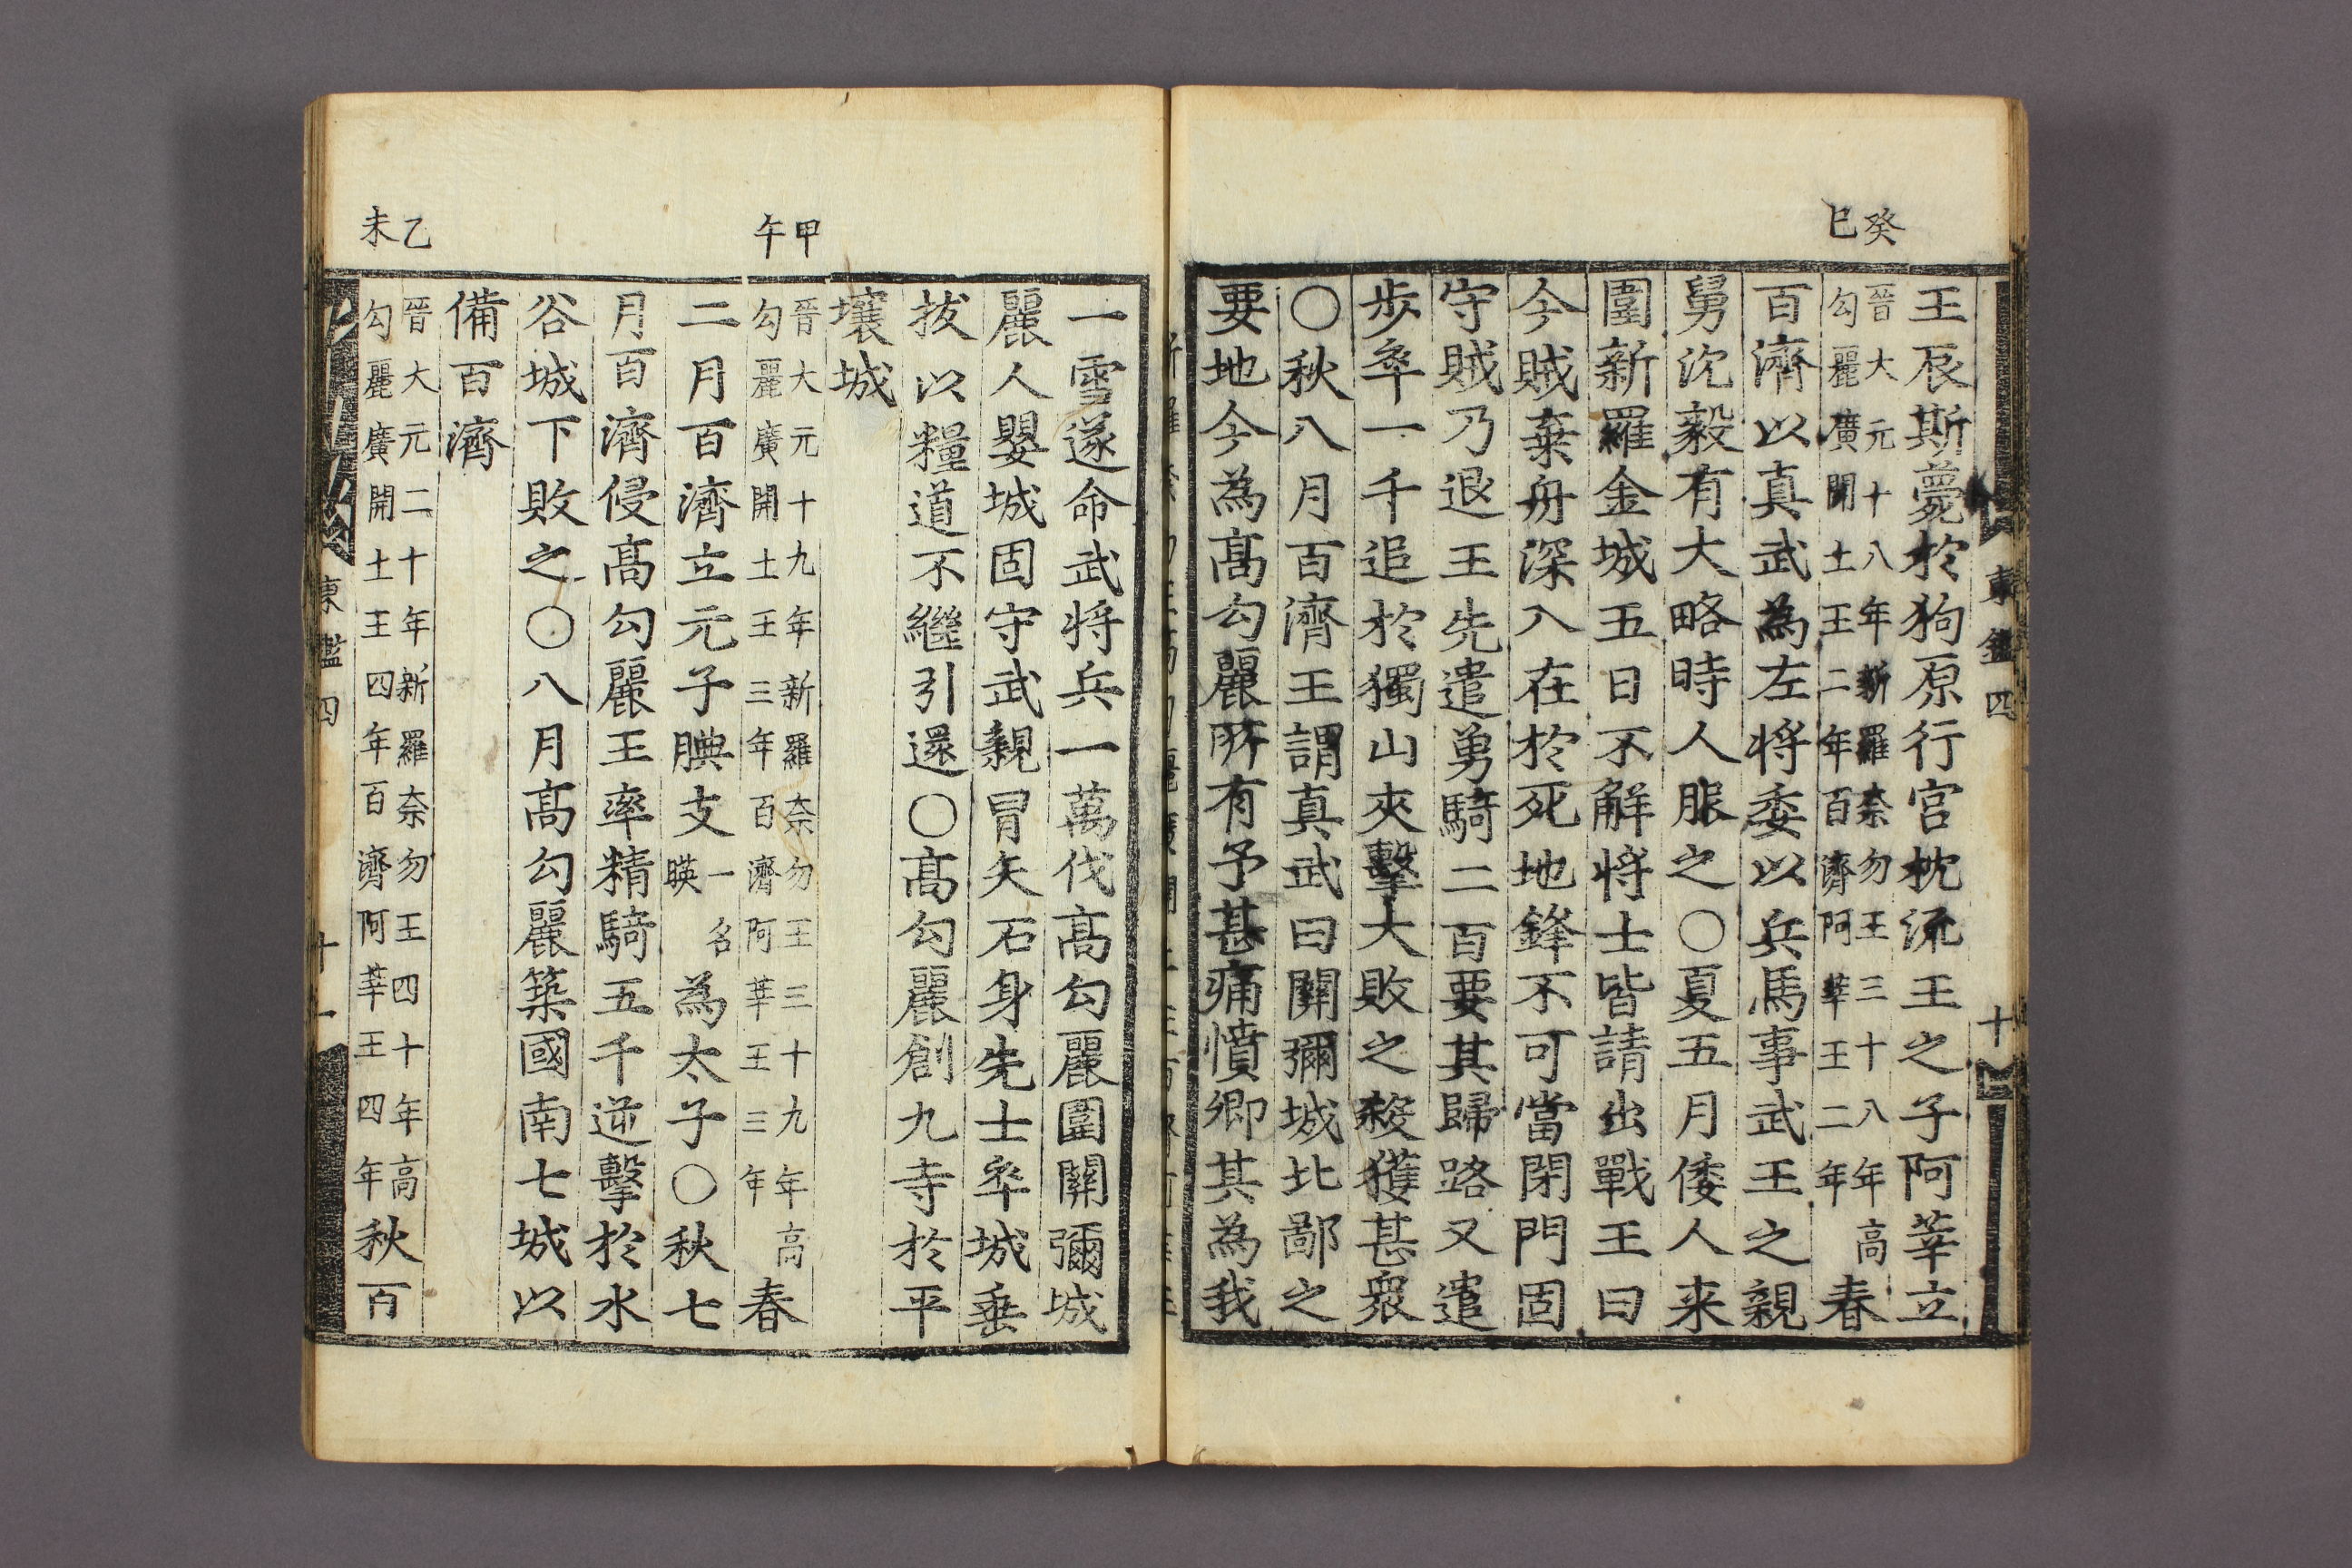 癸巳
王辰斯薨於狗原行宮枕流王之子阿莘立
晉大元十八年新羅奈勿王三十八年高
勾麗廣開土王二年百濟阿莘王二年
春
百濟以真武為左將委以兵馬事武王之親
舅沈毅有大略時人服之〇夏五月倭人来
圍新羅金城五日不解將士皆請出戰王曰
今賊棄舟深入在於死地鋒不可當閉門固
守賊乃退王先遣勇騎二百要其歸路又遣
步卒一千追於獨山夾擊大敗之殺獲甚衆
〇秋八月百濟王謂真武曰關彌城北鄙之
要地今為髙勾麗所有予甚痛憤卿其為我
東鑑四
十
甲午
乙未
一雪遂命武将兵一萬伐髙勾麗圍關彌城
麗人嬰城固守武親冒矢石身先士卒城垂
拔以糧道不繼引還〇髙勾麗創九寺於平
壤城
晉大元十九年新羅奈勿王三十九年高
勾麗廣開土王三年百濟阿莘王三年
春
二月百濟立元子腆支
一名
暎
為太子〇秋七
月百濟侵髙勾麗王率精騎五千逆擊於水
谷城下敗之〇八月髙勾麗築國南七城以
備百濟
晉大元二十年新羅奈勿王四十年高
勾麗廣開土王四年百濟阿莘王四年
秋百
東鑑四
十一